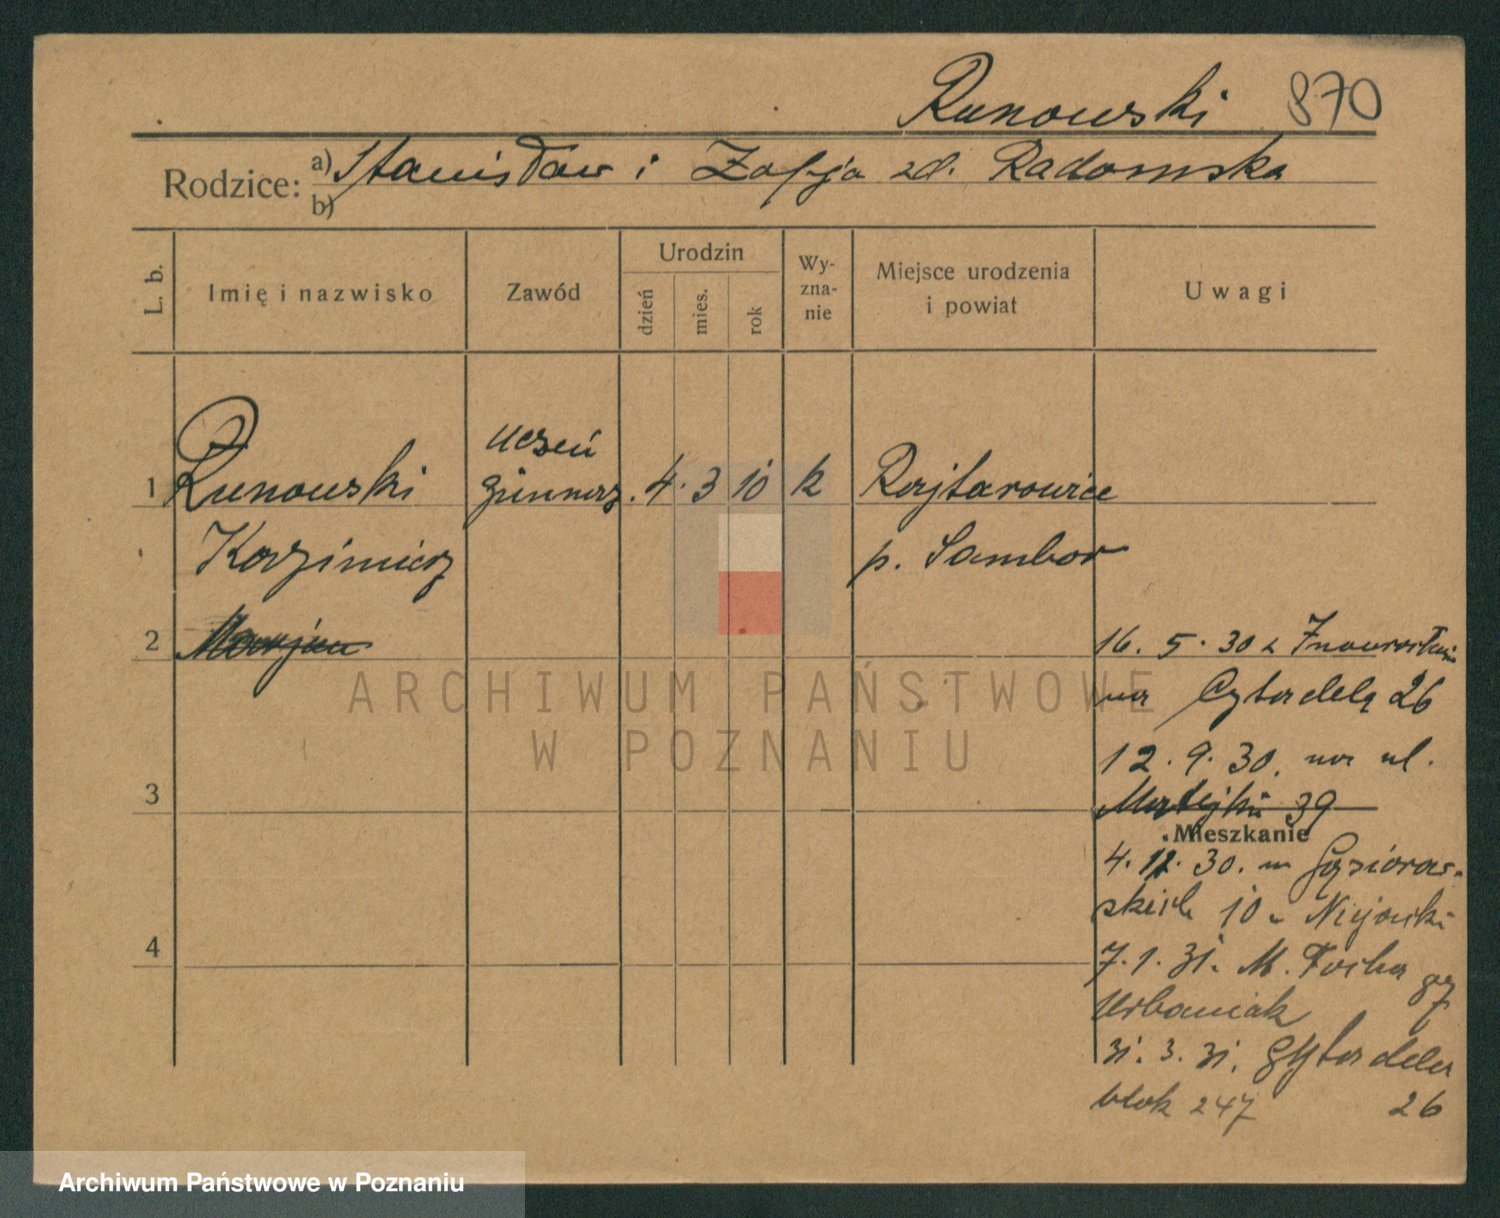 Runowski 870
Rodzice: a) Stanisław i Zofja zd. Radomska
b)
L. b.
Imię i nazwisko
Zawód
Urodzin
dzień
mies.
rok
Wy-
zna-
nie
Miejsce urodzenia
i powiat
Uwagi
uczeń
1 Runowski gimnaz. 4. 3 10 k Rajtarowice
Kazimierz p. Sambor
2 Marjan
16. 5. 30 z Inowrocławia
na Cytadelą 26
12. 9. 30. na ul.
3 Matejki 39
Mieszkanie
4. 11. 30. Gąsiorow-
skich 10 u Niejowski
4
7. 1. 31. M. Focha
Urbaniak
31. 3. 31. Cytadela
blok 247 26
ARCHIWUM PAŃSTWOWE
W POZNANIU
Archiwum Państwowe w Poznaniu